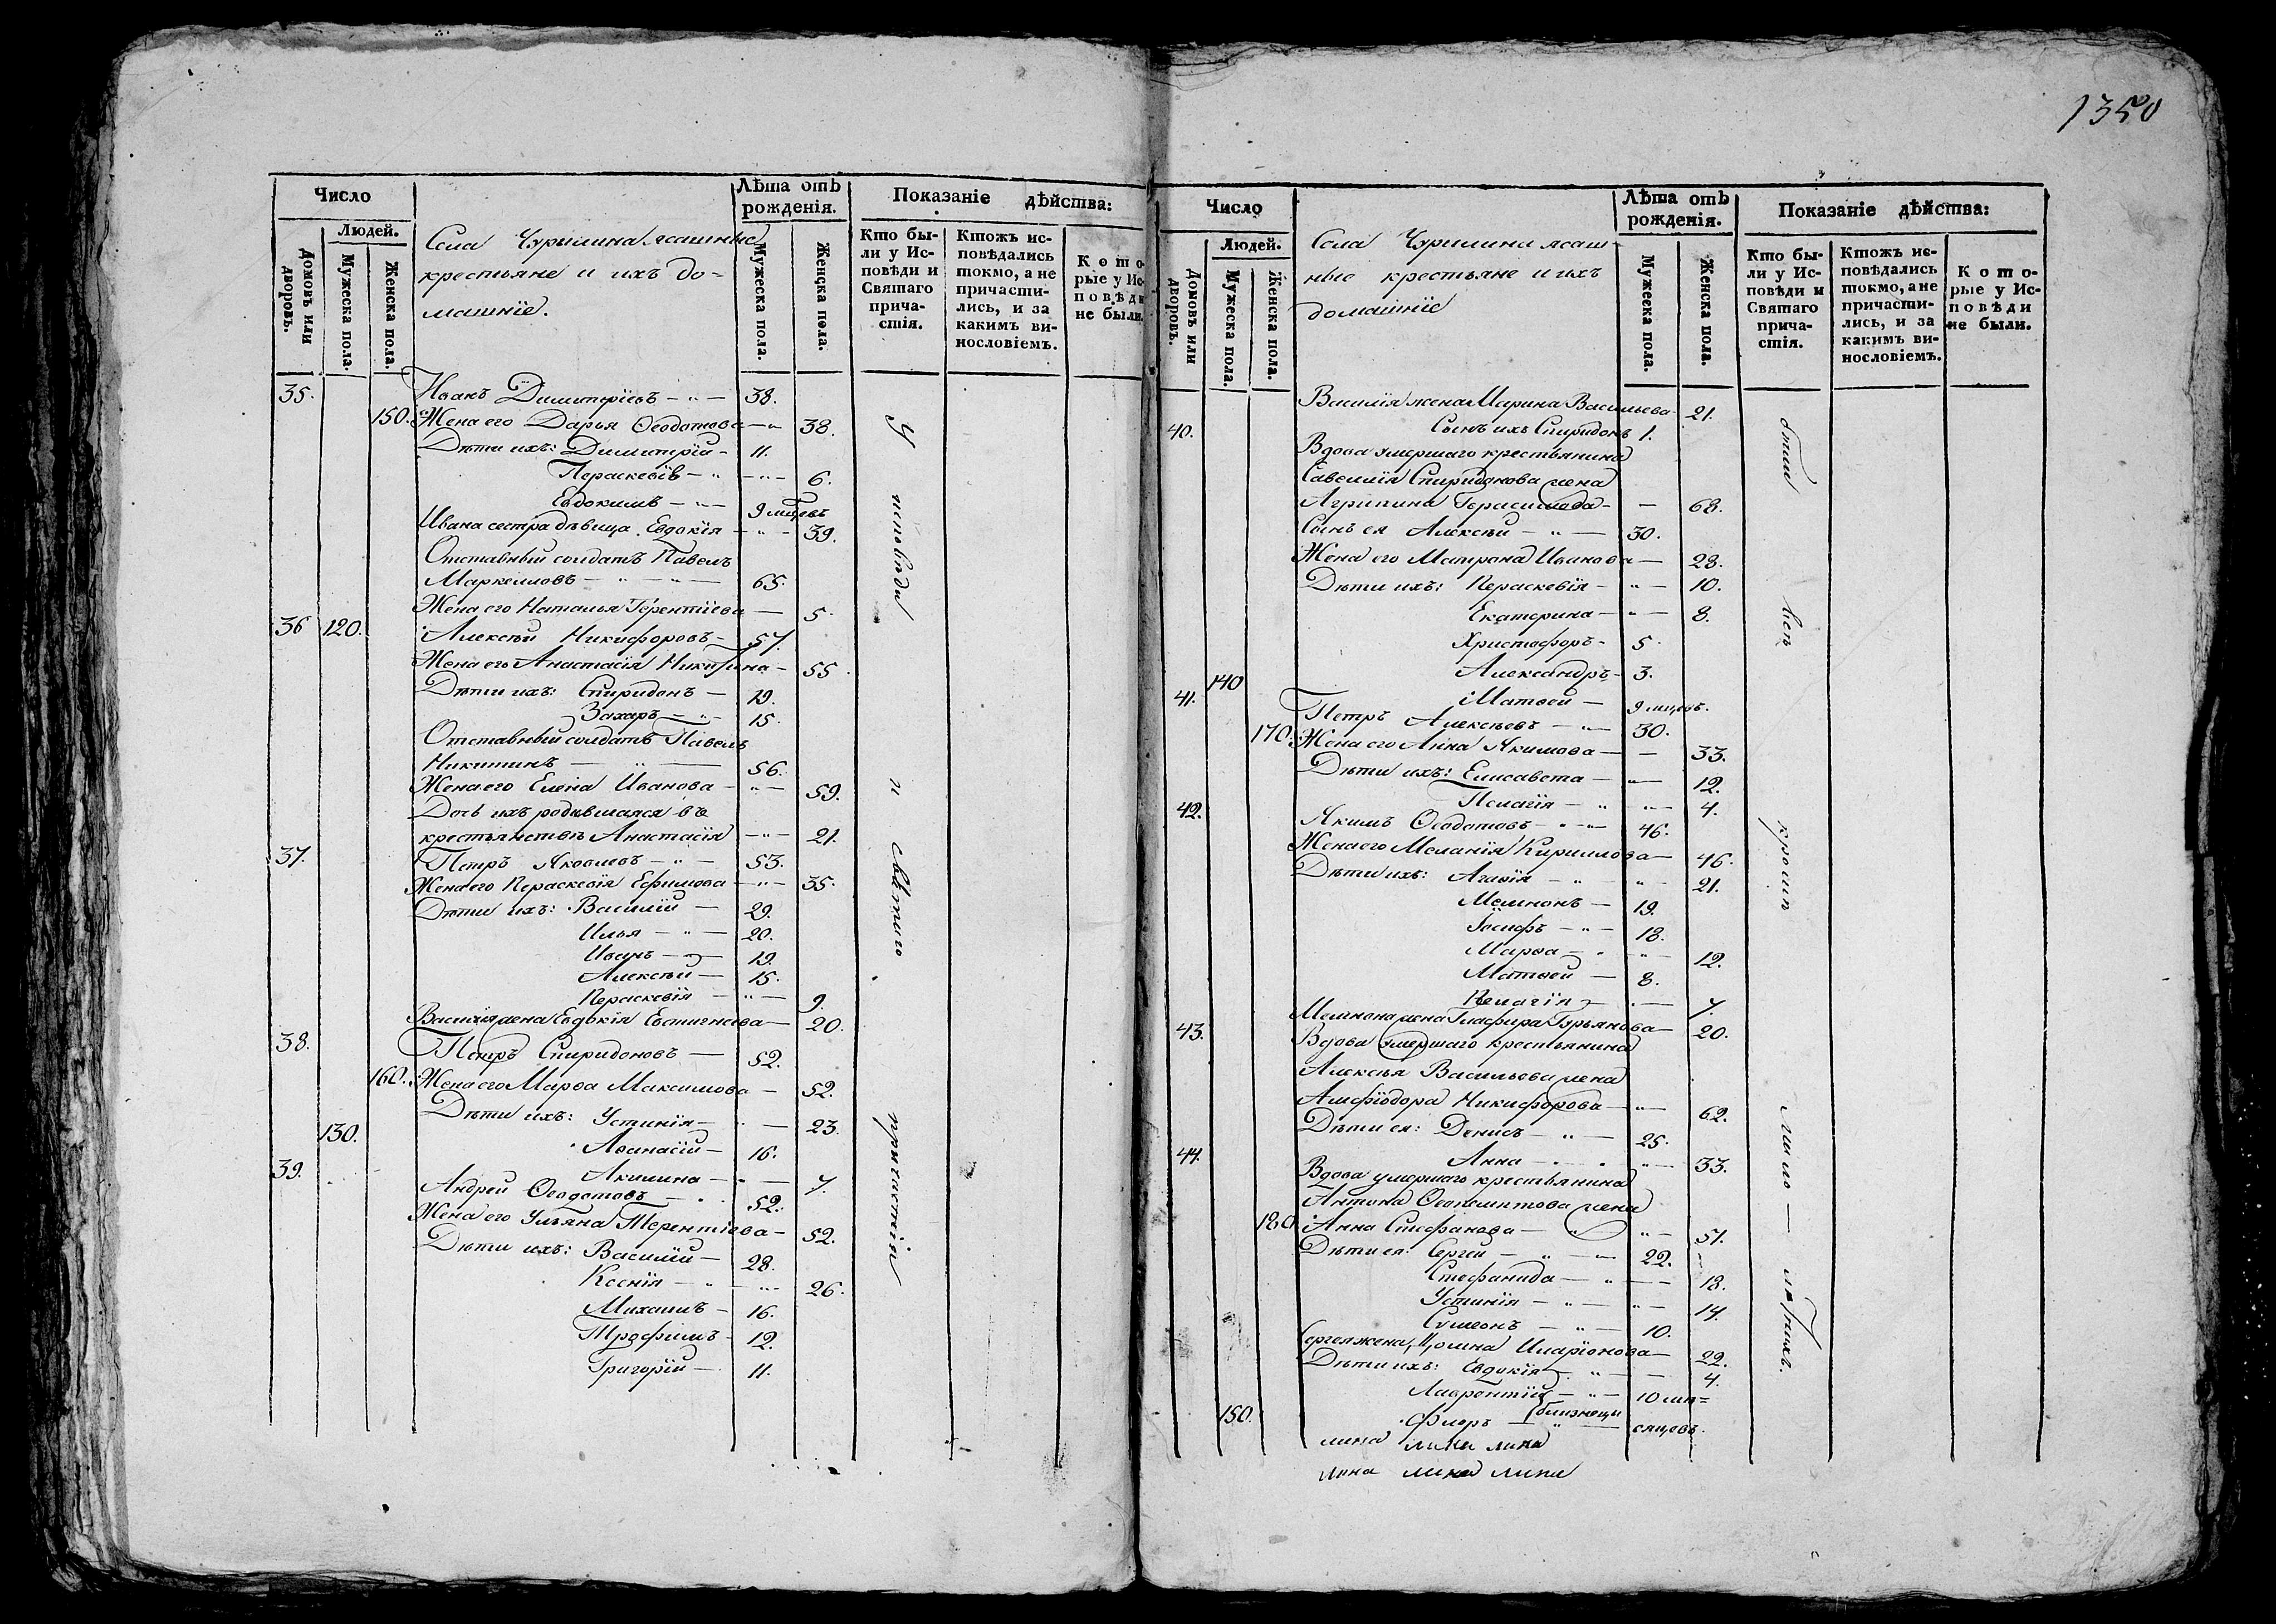 1350
Число
Лѣта отъ рожденія.
Показаніе дѣйства:
Людей.
Домовъ или дворовъ.
Мужеска пола.
Женска пола.
Села Чурилина ясашные
крестьяне и ихъ до-
машніе.
Мужеска пола.
Женска пола.
Кто бы-
ли у Ис-
повѣди и
Святаго
прича-
стія.
Ктожъ ис-
повѣдались
токмо, а не
причасти-
лись, и за
какимъ ви-
нословіемъ.
Кото-
рые у Ис-
повѣди
не были.
35. Иванъ Димитріевъ — " — 38.
150. Жена его Дарья Ѳеодотова — " 38.
Дѣти ихъ: Димитрій — 11.
Параскевія — " — " — 6.
Евдокимъ — " — 9 мцовъ
Ивана сестра дѣвица Евдокія — " — 39.
Отставный солдатъ Павелъ
Маркелловъ — " — " — 65
Жена его Наталья Терентіева — 5
36 120. Алексѣй Никифоровъ — 57.
Жена его Анастасія Никитина — 55.
Дѣти ихъ: Спиридонъ — 19.
Захаръ — " — 15.
Отставный солдатъ Павелъ
Никитинъ — " — 56.
Жена его Елена Иванова — " — 59.
Дочь ихъ родившаяся въ
крестьянствѣ Анастасія — " — 21.
37. Петръ Яковлевъ — " — 53.
Жена его Параскевія Ефимова — " — 35.
Дѣти ихъ: Василій — 29.
Илья — " — 20.
Иванъ — " — 19.
Алексѣй — 15.
Параскевія — " — 9.
Василія жена Евдокія Евстигнеева — 20.
38. Петръ Спиридоновъ — 52.
160. Жена его Марѳа Максимова — 52.
Дѣти ихъ: Устинія — " — 23.
130. Аѳанасій — 16.
Акилина — " — 7.
39. Андрей Ѳеодотовъ — " 52.
Жена его Ульяна Терентіева — 52.
Дѣти ихъ: Василій — 28.
Ксенія — " — " 26.
Михаилъ — 16.
Трофимъ — 12.
Григорій — 11.
У исповѣди и святаго причастія
Число
Лѣта отъ рожденія.
Показаніе дѣйства:
Людей.
Домовъ или дворовъ.
Мужеска пола.
Женска пола.
Села Чурилина ясаш-
ные крестьяне и ихъ
домашніе
Мужеска пола.
Женска пола.
Кто бы-
ли у Ис-
повѣди и
Святаго
прича-
стія.
Ктожъ ис-
повѣдались
токмо, а не
причасти-
лись, и за
какимъ ви-
нословіемъ.
Кото-
рые у Ис-
повѣди
не были.
Василія жена Марина Васильева 21.
Сынъ ихъ Спиридонъ 1.
40. Вдова умершаго крестьянина
Савелія Спиридонова жена
Агрипина Герасимова — 68.
Сынъ ея Алексѣй — " — 30.
Жена его Матрона Иванова — 28.
Дѣти ихъ: Параскевія — " — 10.
Екатерина — " — 8.
Христофоръ — 5
Александръ — 3.
140 Матѳей — 9 мцовъ.
41. Петръ Алексѣевъ — " — 30.
170. Жена его Анна Якимова — 33.
Дѣти ихъ: Елисавета — " — 12.
Пелагія — " " — 4.
42. Якимъ Ѳеодотовъ — " — 46.
Жена его Меланія Кириллова — 46.
Дѣти ихъ: Агаѳія — " " — 21.
Мемнонъ — 19.
Іосифъ — " — 18.
Марѳа — " " — 12.
Матѳей — 8.
Пелагія — " — 7.
Мемнона жена Глафира Гурьянова — 20.
43. Вдова умершаго крестьянина
Алексѣя Васильева жена
Алефіодора Никифорова — " — 62.
Дѣти ея: Денисъ — " — 25.
Анна — " " — 33.
44. Вдова умершаго крестьянина
Антона Ѳеоѳемптова жена
180 Анна Стефанова — " " — 51.
Дѣти ея: Сергей — " — 22.
Стефанида — " — 18.
Устинія — " — " — 14.
Сумеонъ — " — 10.
Сергея жена Иларіонова — 22.
Дѣти ихъ: Евдокія — " — 4.
Лаврентій — " — 10 мѣ=
150. Флоръ близнецы " — сяцовъ.
были всѣ кромѣ мало — лѣтнихъ.